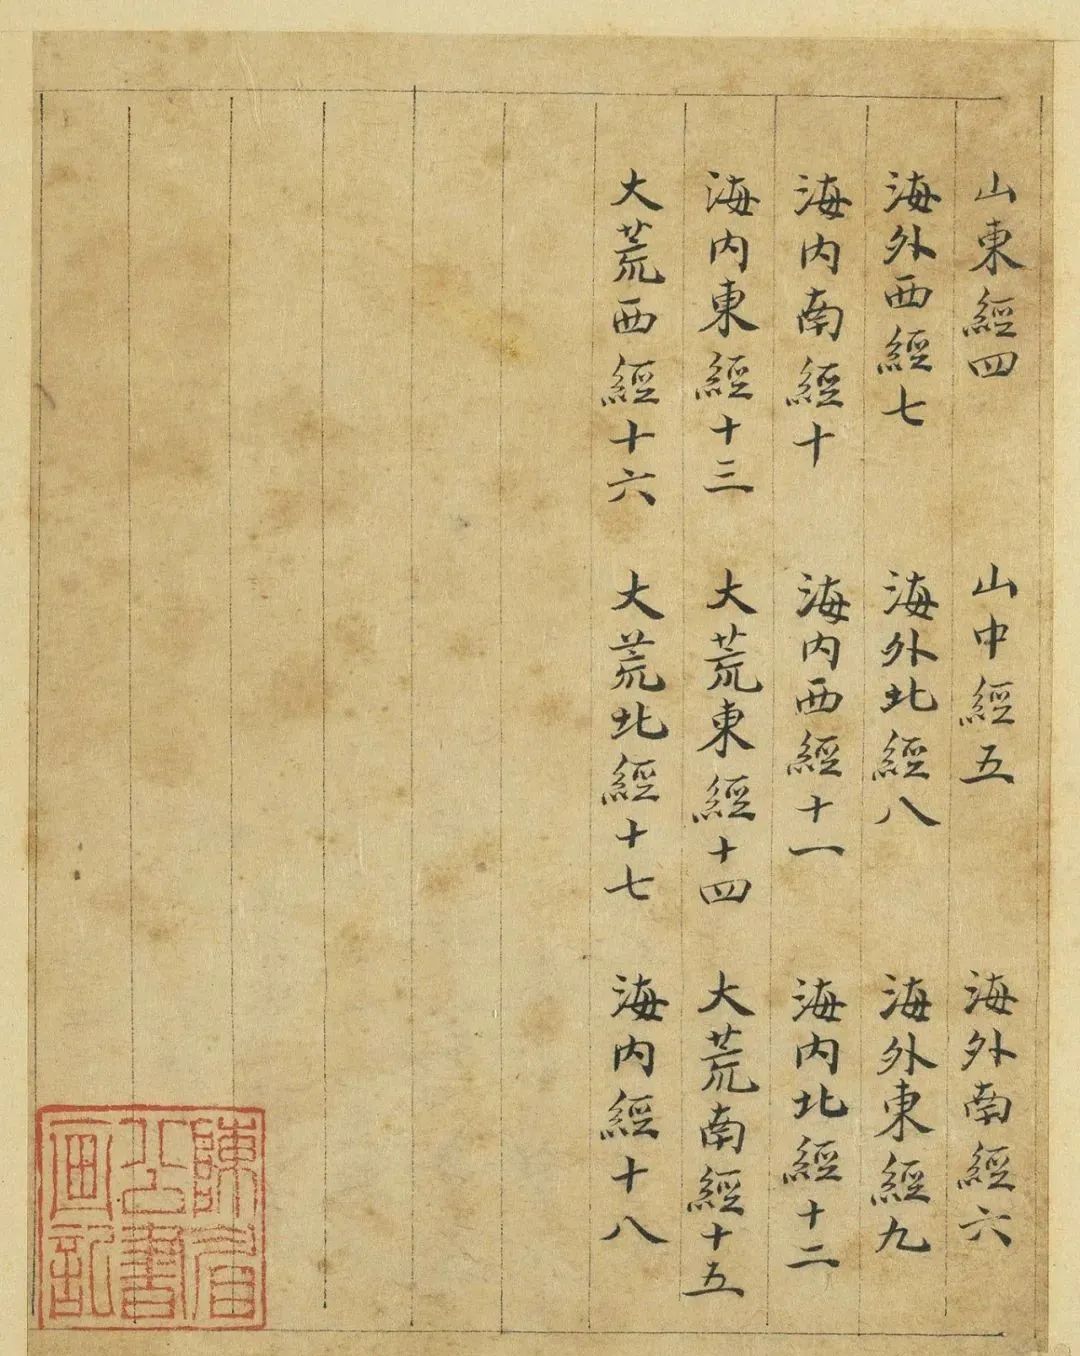 山東經四 山中經五 海外南經六
海外西經七 海外北經八 海外東經九
海內南經十 海內西經十一 海內北經十二
海內東經十三 大荒東經十四 大荒南經十五
大荒西經十六 大荒北經十七 海內經十八
陳眉
公書
画記